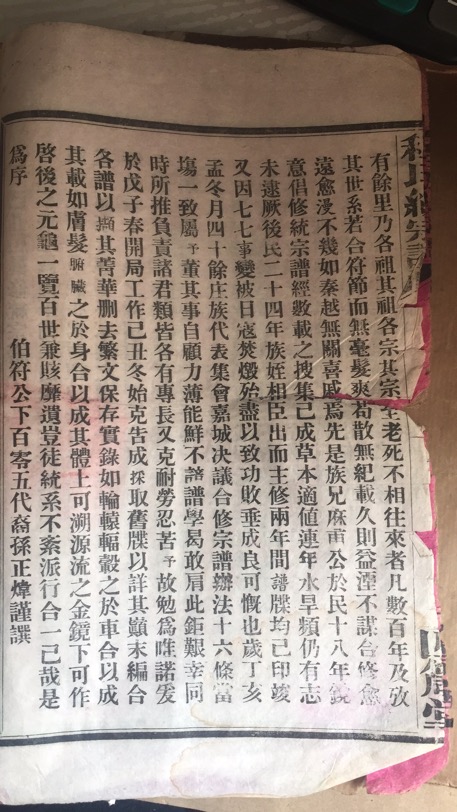 有餘里乃各祖其祖各宗其宗至老死不相往來者凡數百年及攷
其世系若合符節而無毫髮爽苟散無紀載久則益湮不謀合修愈
遠愈漫不幾如秦越無關喜戚焉先是族兄麻重公於民十八年銳
意倡修統宗譜經數載之搜集已成草本適值連年水旱頻仍有志
未逮厥後民二十四年族姪相臣出而主修兩年間譜牒均已印竣
又因七七事變被日寇焚燬殆盡以致功敗垂成良可慨也歲丁亥
孟冬月四十餘庄族代表集會嘉城決議合修宗譜辦法十六條當
塲一致屬予董其事自顧力薄能鮮不諳譜學易敢肩此鉅艱幸同
時所推負責諸君類皆各有專長又克耐勞忍苦予故勉爲唯諾爰
於戊子春開局工作己丑冬始克告成採取舊牒以詳其巔末編合
各譜以擷其菁華删去繁文保存實錄如輪轅輻轂之於車合以成
其載如膚髮腑臟之於身合以成其體上可溯源流之金鏡下可作
啓後之元龜一覽百世兼賅靡遺豈徒統系不紊派行合一已哉是
爲序
伯符公下百零五代裔孫正煒謹譔